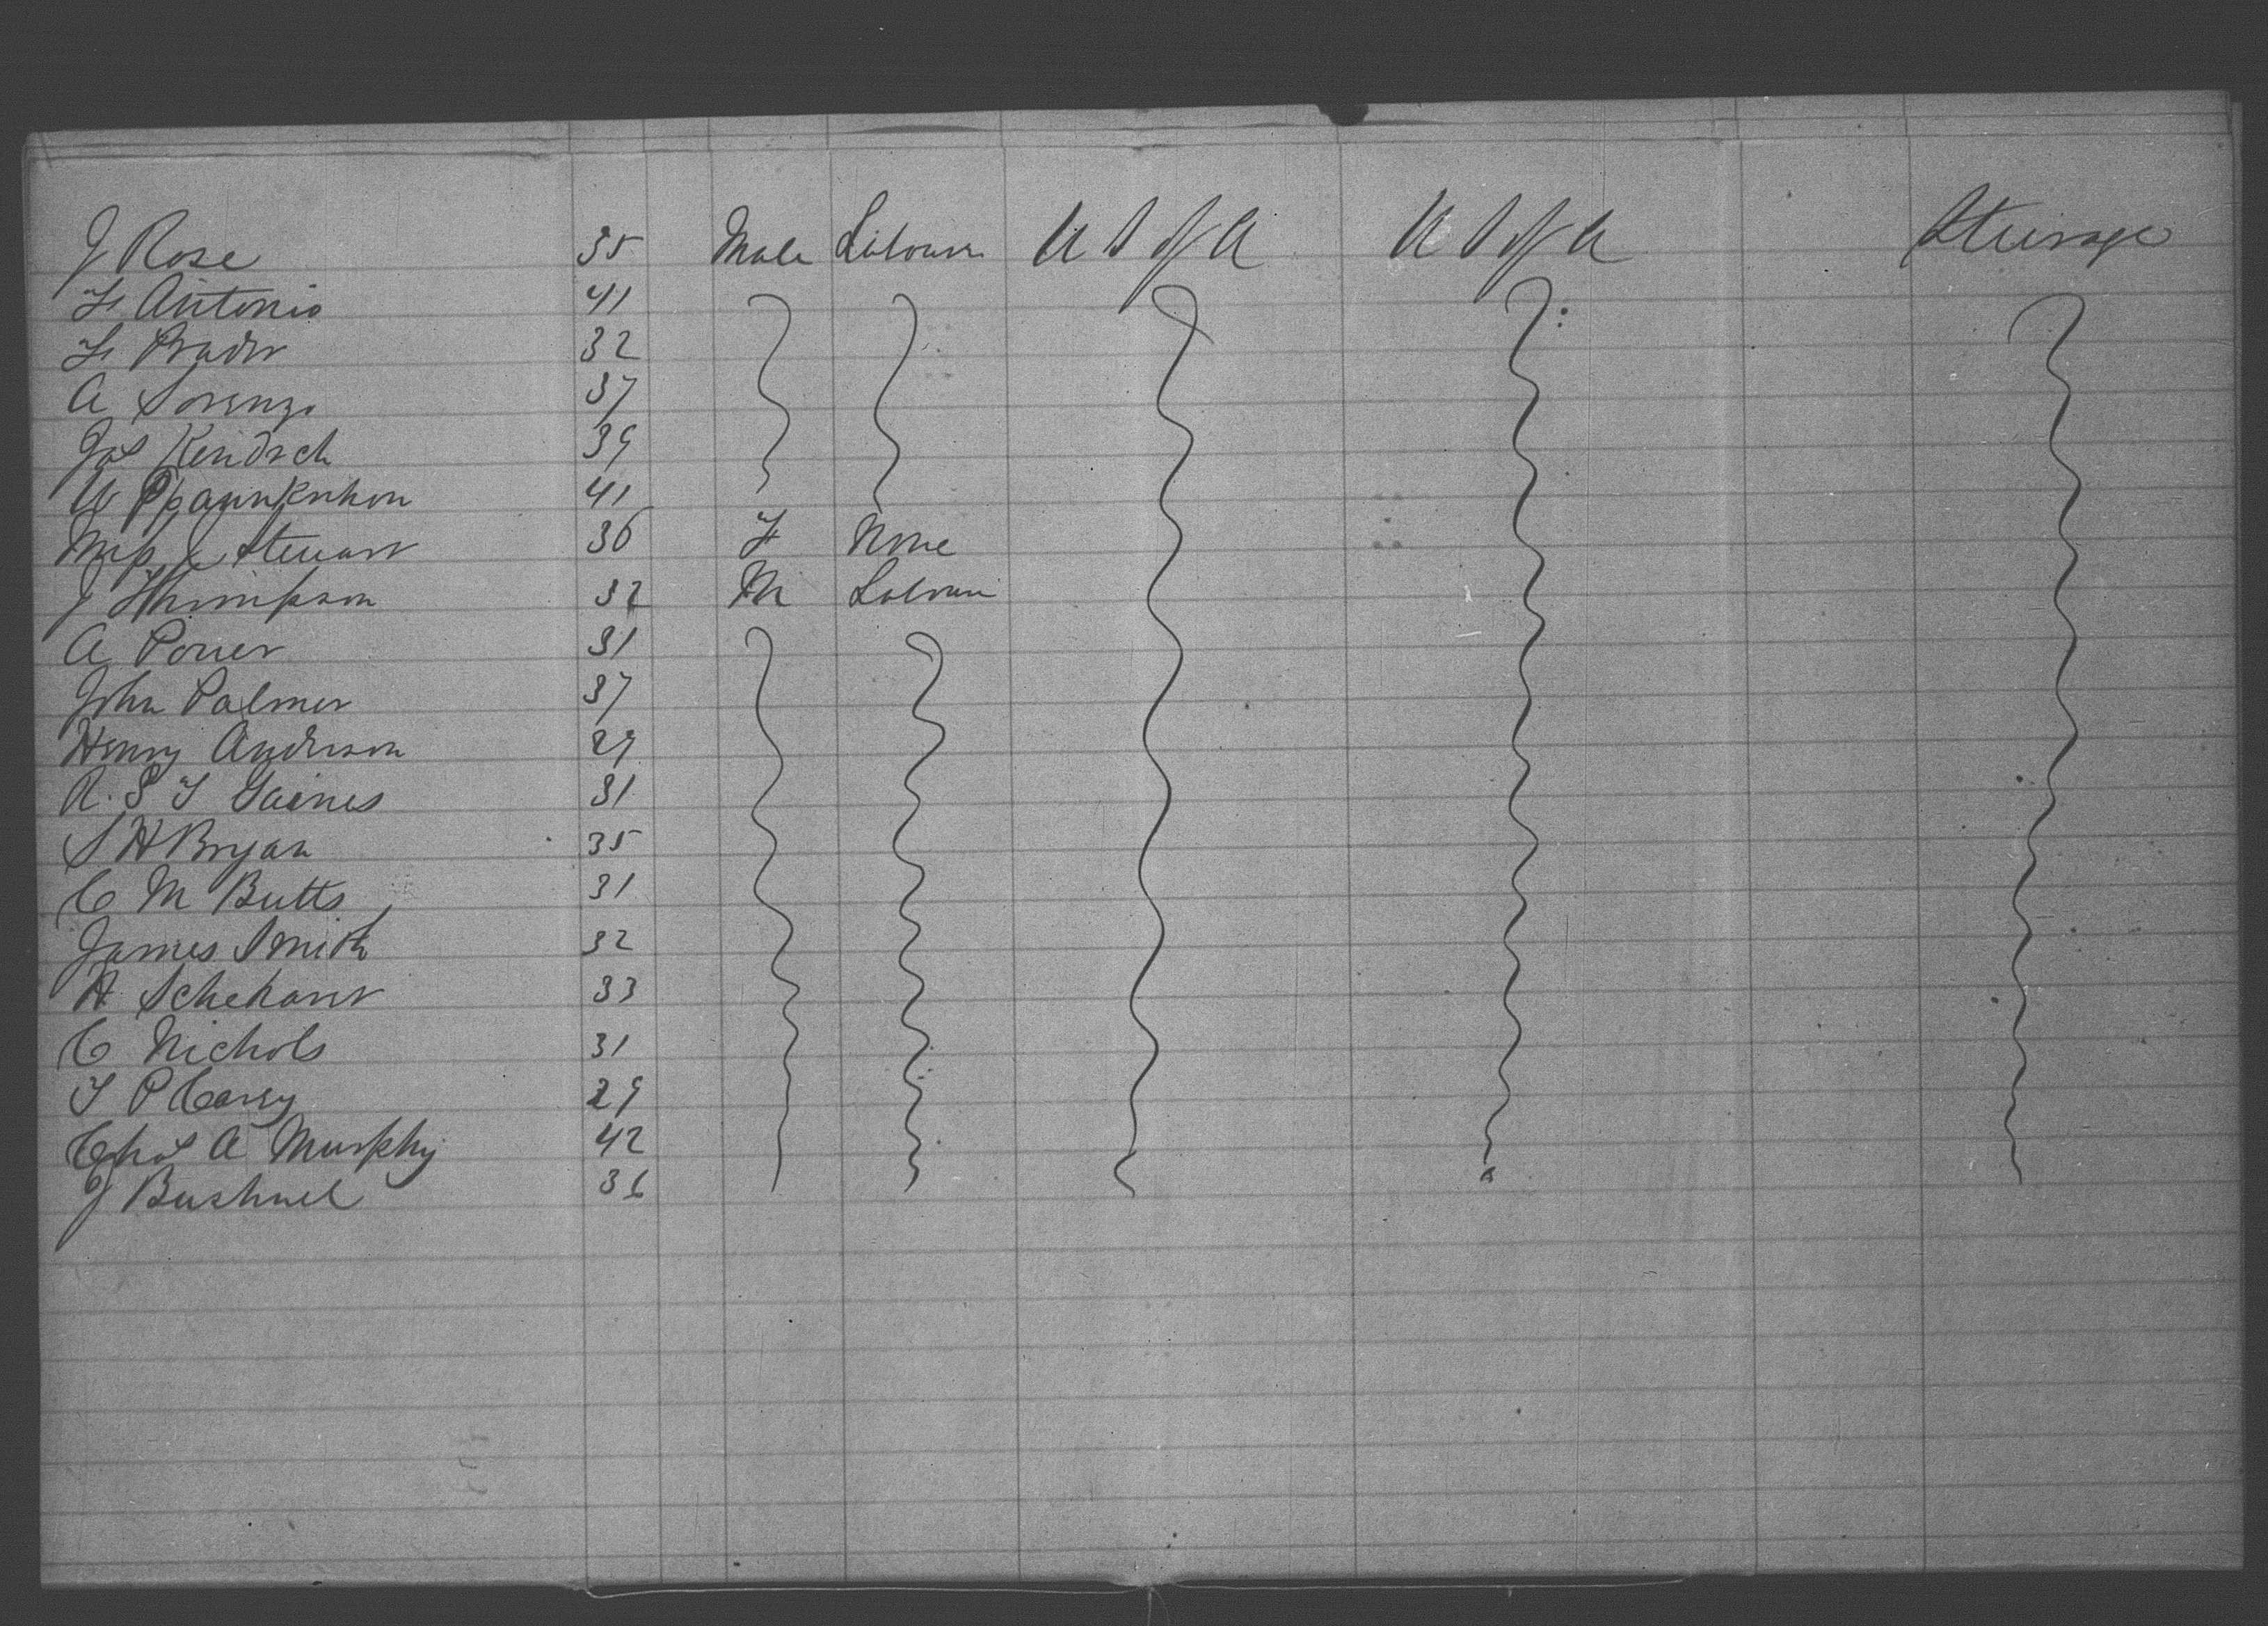 J Rose 35 Male Labourer U S of A U S of A Steerage
F Antonio 41
F Prader 32
A Lorenzo 37
Jos Kindsch 39
W 41
Miss J Stewart 36 F None
J Thompson 32 M Labourer
A Porier 31
John Palmer 37
Henry Anderson 29
R. S T Gaines 31
S H Bryan 35
C M Butts 31
James Smith 32
H 33
C Nichols 31
T P Carey 29
Chas A Murphy 42
J Bushnel 36